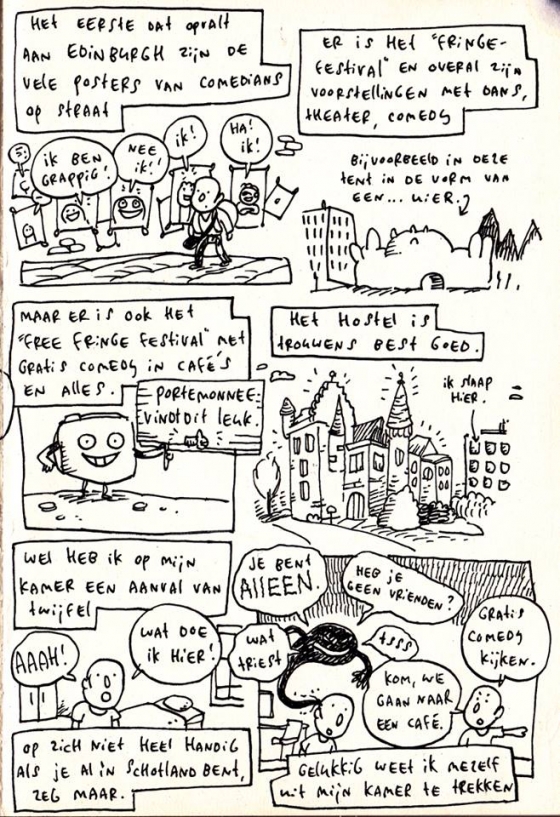 HET EERSTE DAT OPVALT
AAN EDINBURGH ZIJN DE
VELE POSTERS VAN COMEDIANS
OP STRAAT
IK BEN
GRAPPIG!
NEE
IK!!
IK!
HA!
IK!
ER IS HET "FRINGE-
FESTIVAL" EN OVERAL ZIJN
VOORSTELLINGEN MET DANS,
THEATER, COMEDY
BIJVOORBEELD IN DEZE
TENT IN DE VORM VAN
EEN... UIER.
MAAR ER IS OOK HET
"FREE FRINGE FESTIVAL" MET
GRATIS COMEDY IN CAFÉ'S
EN ALLES.
PORTEMONNEE
VINDT DIT LEUK.
HET HOSTEL IS
TROUWENS BEST GOED.
IK SLAAP
HIER.
WEL HEB IK OP MIJN
KAMER EEN AANVAL VAN
TWIJFEL
AAAH!
WAT DOE
IK HIER!
OP ZICH NIET HEEL HANDIG
ALS JE AL IN SCHOTLAND BENT,
ZEG MAAR.
JE BENT
ALLEEN.
HEB JE
GEEN VRIENDEN?
WAT
TRIEST
TSSS
KOM, WE
GAAN NAAR
EEN CAFÉ.
GRATIS
COMEDY
KIJKEN.
GELUKKIG WEET IK MEZELF
UIT MIJN KAMER TE TREKKEN